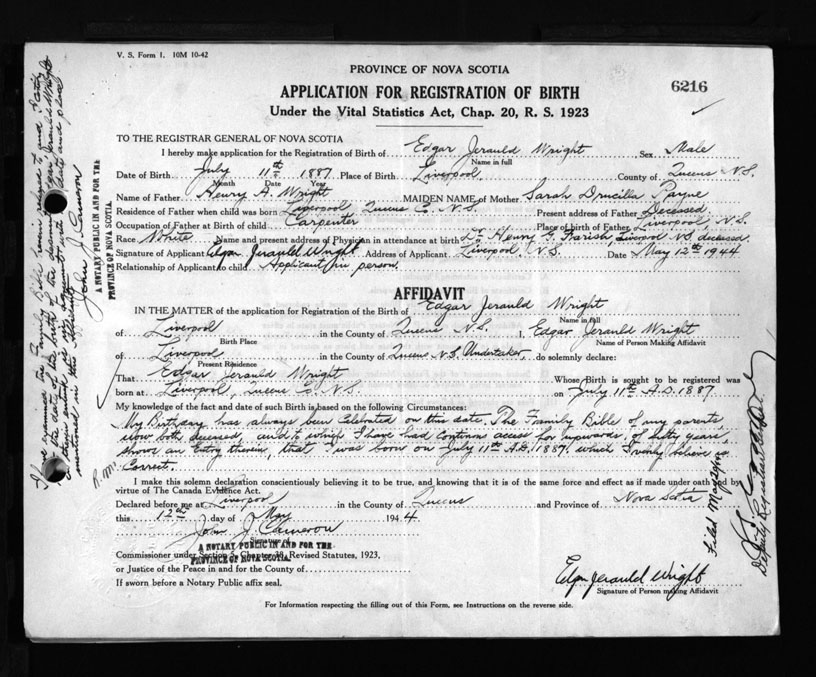 V. S. Form 1. 10M 10-42
PROVINCE OF NOVA SCOTIA
6216
APPLICATION FOR REGISTRATION OF BIRTH
Under the Vital Statistics Act, Chap. 20, R. S. 1923
TO THE REGISTRAR GENERAL OF NOVA SCOTIA
I hereby make application for the Registration of Birth of Edgar Jerauld Wright Sex Male
Name in full
Date of Birth July 11th 1887 Place of Birth Liverpool County of Queens N.S.
Month Date Year
Name of Father Henry A. Wright MAIDEN NAME of Mother Sarah Drucilla Payne
Residence of Father when child was born Liverpool Queens C. N.S. Present address of Father Deceased
Occupation of Father at Birth of child Carpenter Place of birth of Father Liverpool, N.S.
Race White Name and present address of Physician in attendance at birth Dr. Henry G. Farish, Liverpool NS deceased.
Signature of Applicant Edgar Jerauld Wright Address of Applicant Liverpool, N.S. Date May 12th 1944
Relationship of Applicant to child Applicant in person.
AFFIDAVIT
IN THE MATTER of the application for Registration of the Birth of Edgar Jerauld Wright
Name in full
of Liverpool in the County of Queens N.S. I, Edgar Jerauld Wright
Birth Place Name of Person Making Affidavit
of Liverpool in the County of Queens N.S. Undertaker do solemnly declare:
Present Residence
That Edgar Jerauld Wright Whose Birth is sought to be registered was
born at Liverpool, Queens C. N.S. on July 11th A.D. 1887
My knowledge of the fact and date of such Birth is based on the following Circumstances:
My Birthday has always been Celebrated on this date. The Family Bible of my parents,
now both deceased, and to which I have had access for upwards of fifty years,
shows an Entry therein, that I was born on July 11th A.D. 1887, which I verily believe is
Correct.
I make this solemn declaration conscientiously believing it to be true, and knowing that it is of the same force and effect as if made under oath and by
virtue of The Canada Evidence Act.
Declared before me at Liverpool in the County of Queens and Province of Nova Scotia
this 12th day of May 1944.
John J. Cameron
Signature of
A NOTARY PUBLIC IN AND FOR THE
PROVINCE OF NOVA SCOTIA.
Commissioner under Section 5, Chapter 38, Revised Statutes, 1923,
or Justice of the Peace in and for the County of
If sworn before a Notary Public affix seal.
Edgar Jerauld Wright
Signature of Person making Affidavit
For Information respecting the filling out of this Form, see Instructions on the reverse side.
I have examined the Family Bible herein referred to and
the date of the birth of the Edgar Jerauld Wright
therein entered is
mentioned in this affidavit
John J. Cameron
A NOTARY PUBLIC IN AND FOR THE
PROVINCE OF NOVA SCOTIA.
Filed May
Deputy Registrar